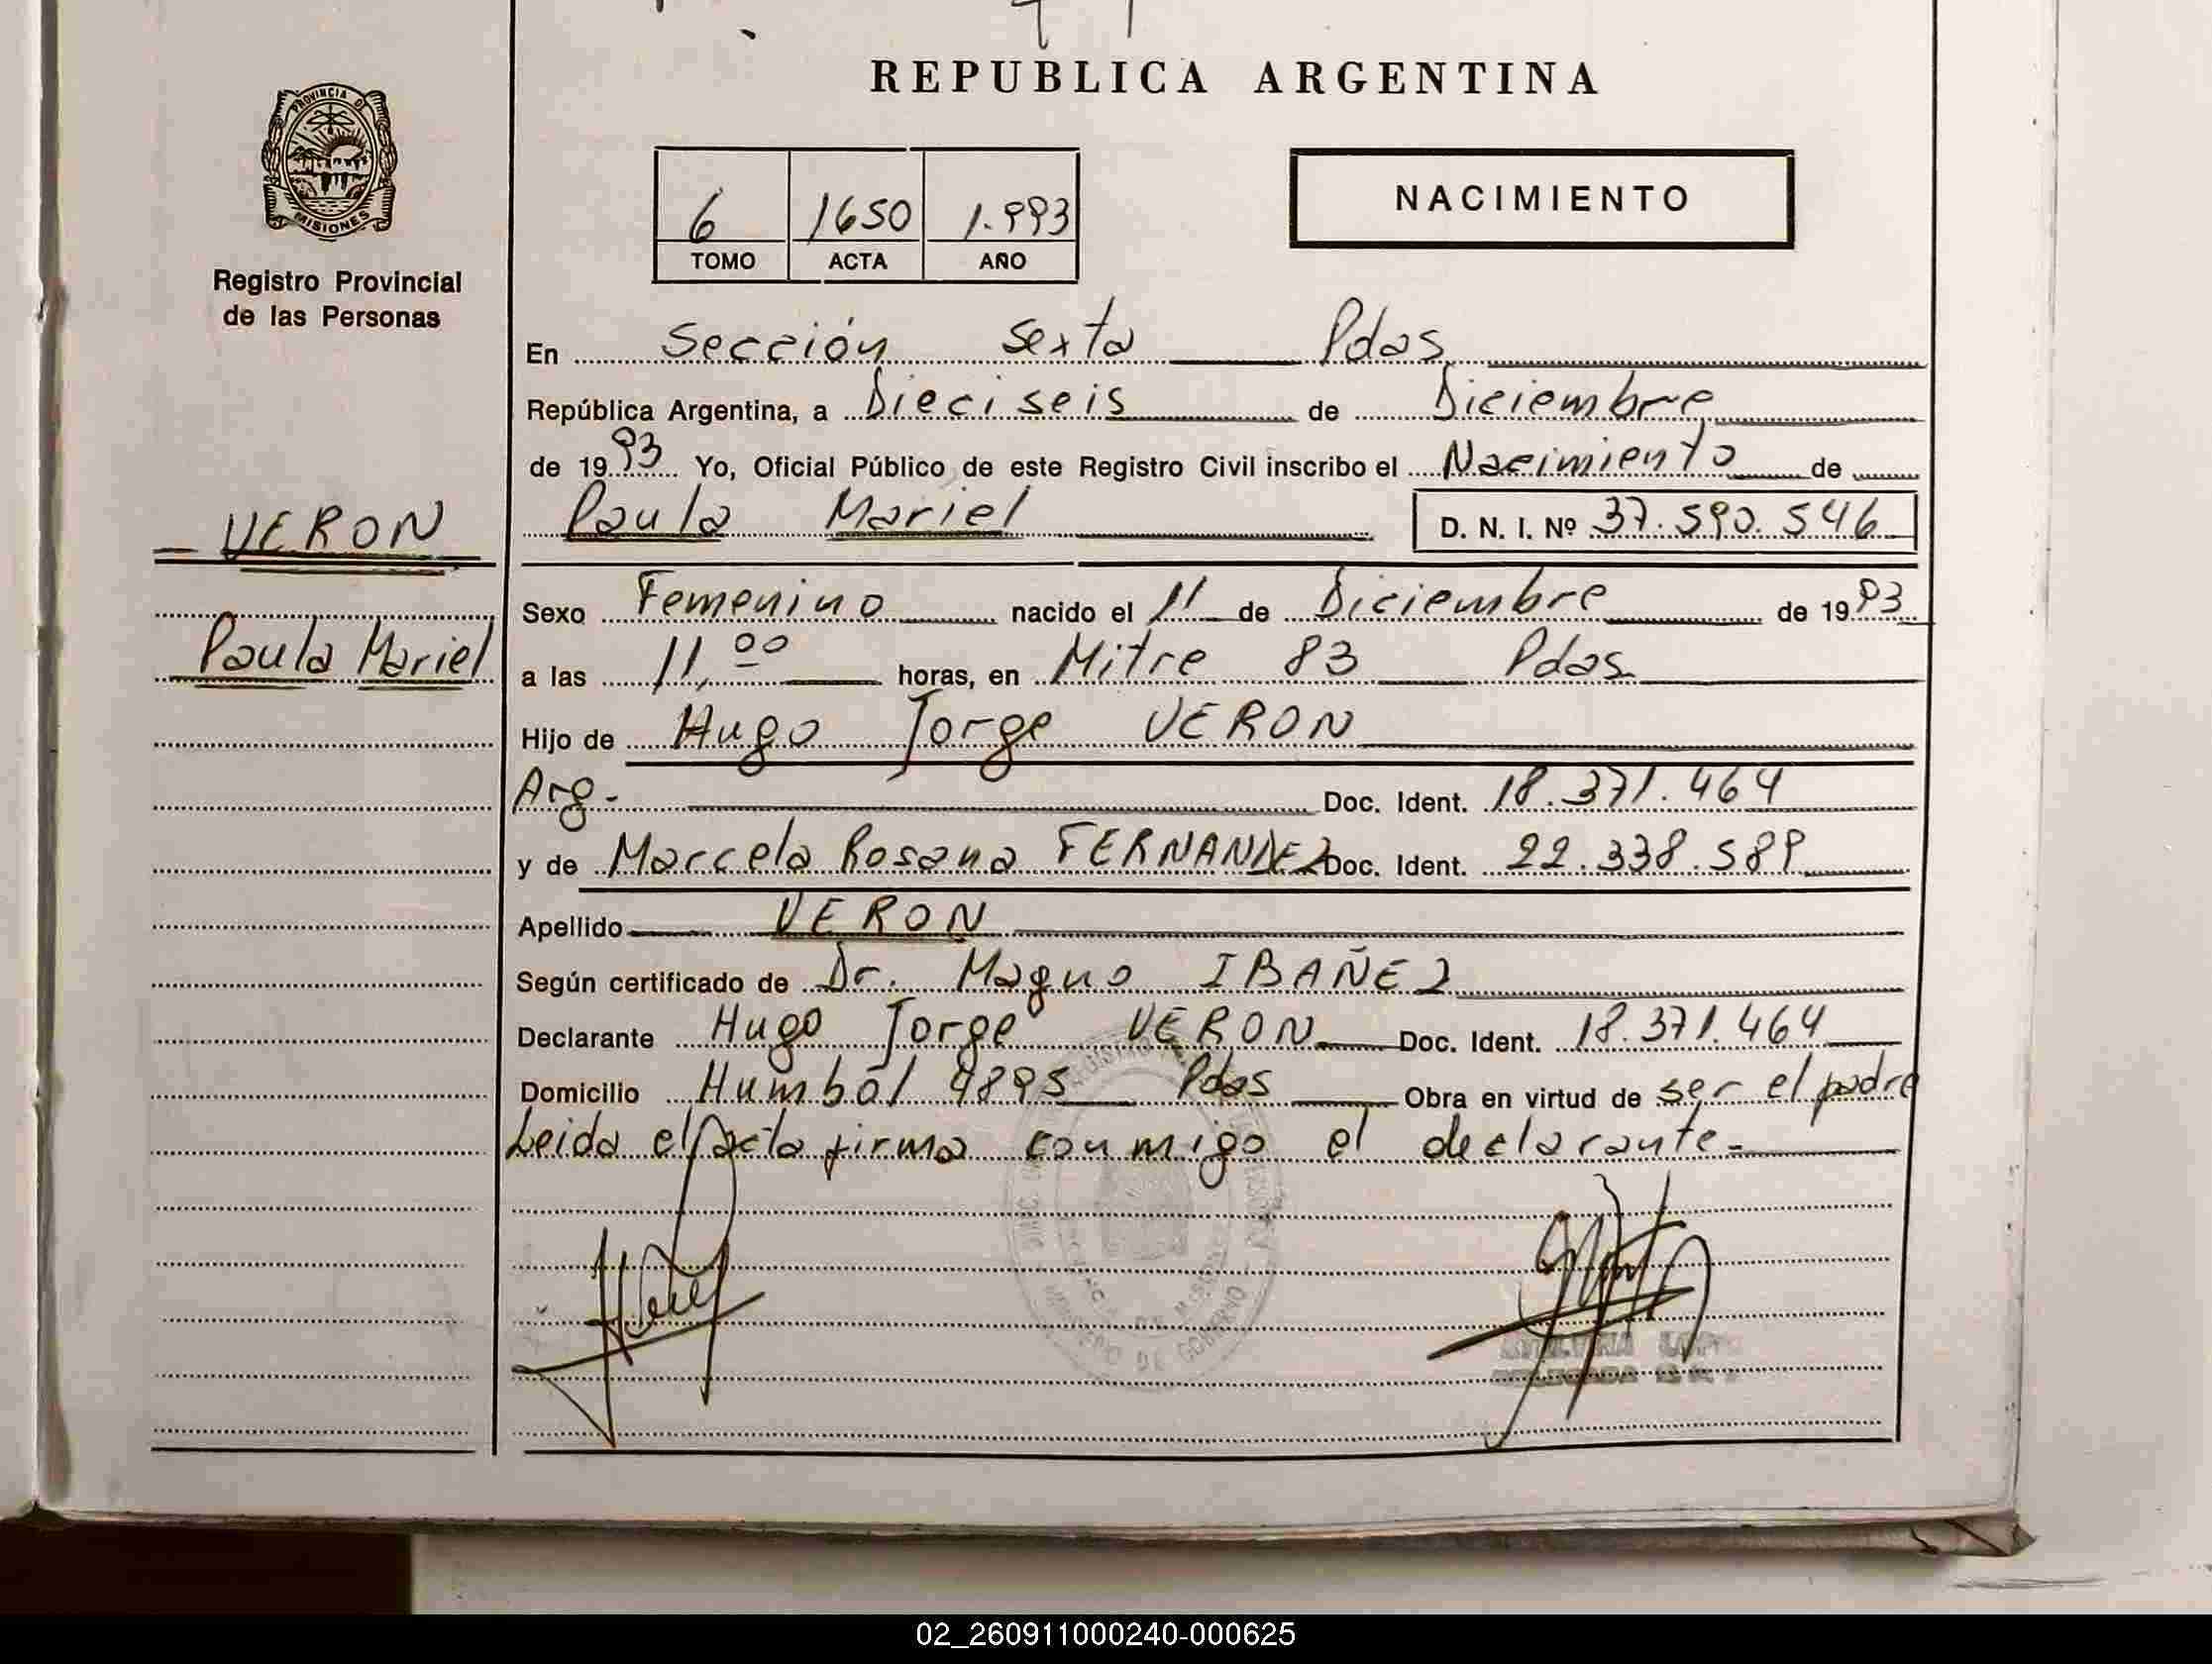 REPUBLICA ARGENTINA
PROVINCIA DE
MISIONES
Registro Provincial
de las Personas
6 1650 1.993
TOMO ACTA AÑO
NACIMIENTO
En Sección Sexta Pdas
República Argentina, a Dieciseis de Diciembre
de 1993 Yo, Oficial Público de este Registro Civil inscribo el Nacimiento de
Paula Mariel D. N. I. Nº 37.590.546
VERON
Paula Mariel
Sexo Femenino nacido el 11 de Diciembre de 1993
a las 11,00 horas, en Mitre 83 Pdas
Hijo de Hugo Jorge VERON
Arg. Doc. Ident. 18.371.464
y de Marcela Rosana FERNANDEZ Doc. Ident. 22.338.589
Apellido VERON
Según certificado de Dr. Magno IBAÑEZ
Declarante Hugo Jorge VERON Doc. Ident. 18.371.464
Domicilio Humból 4895 Pdas Obra en virtud de ser el padre
Leida el acta firma conmigo el declarante.
MINISTERIO DE GOBIERNO
02_260911000240-000625